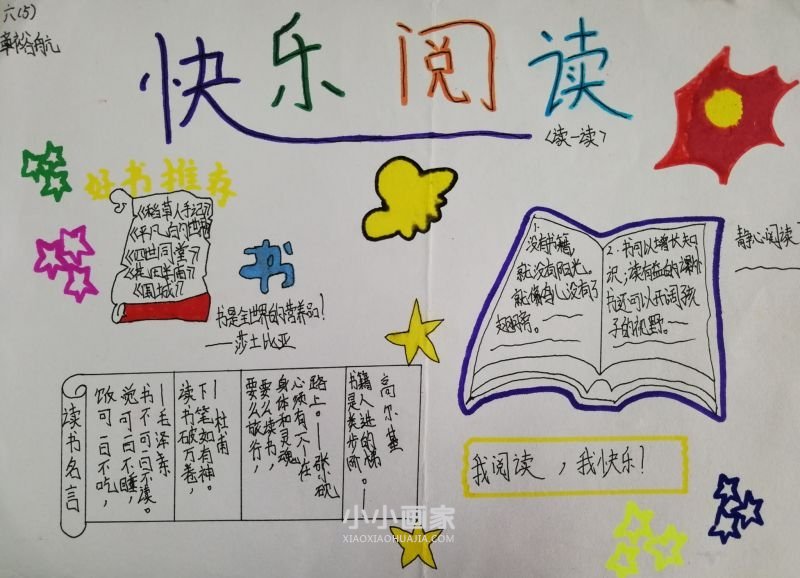 六(5)
快乐阅读
<读一读>
好书推荐
《稻草人手记》
《平凡的世界》
《四世同堂》
《围城》
书
书是全世界的营养品!
——莎士比亚
1.
没有书籍,
就没有阳光。
就像鸟儿没有了
翅膀。
2.书可以增长知
识,读有益的课外
书还可以开阔孩
子的视野。
静心阅读
读书名言
饭可一日不吃,
觉可一日不睡,
书不可一日不读。
—毛泽东
读书破万卷,
下笔如有神。
—杜甫
要么旅行,
要么读书,
身体和灵魂
必须有一个在
路上。—张小砚
书籍是人类进步的阶梯。—
高尔基
我阅读,我快乐!
小小画家
XIAOXIAOHUAJIA.COM